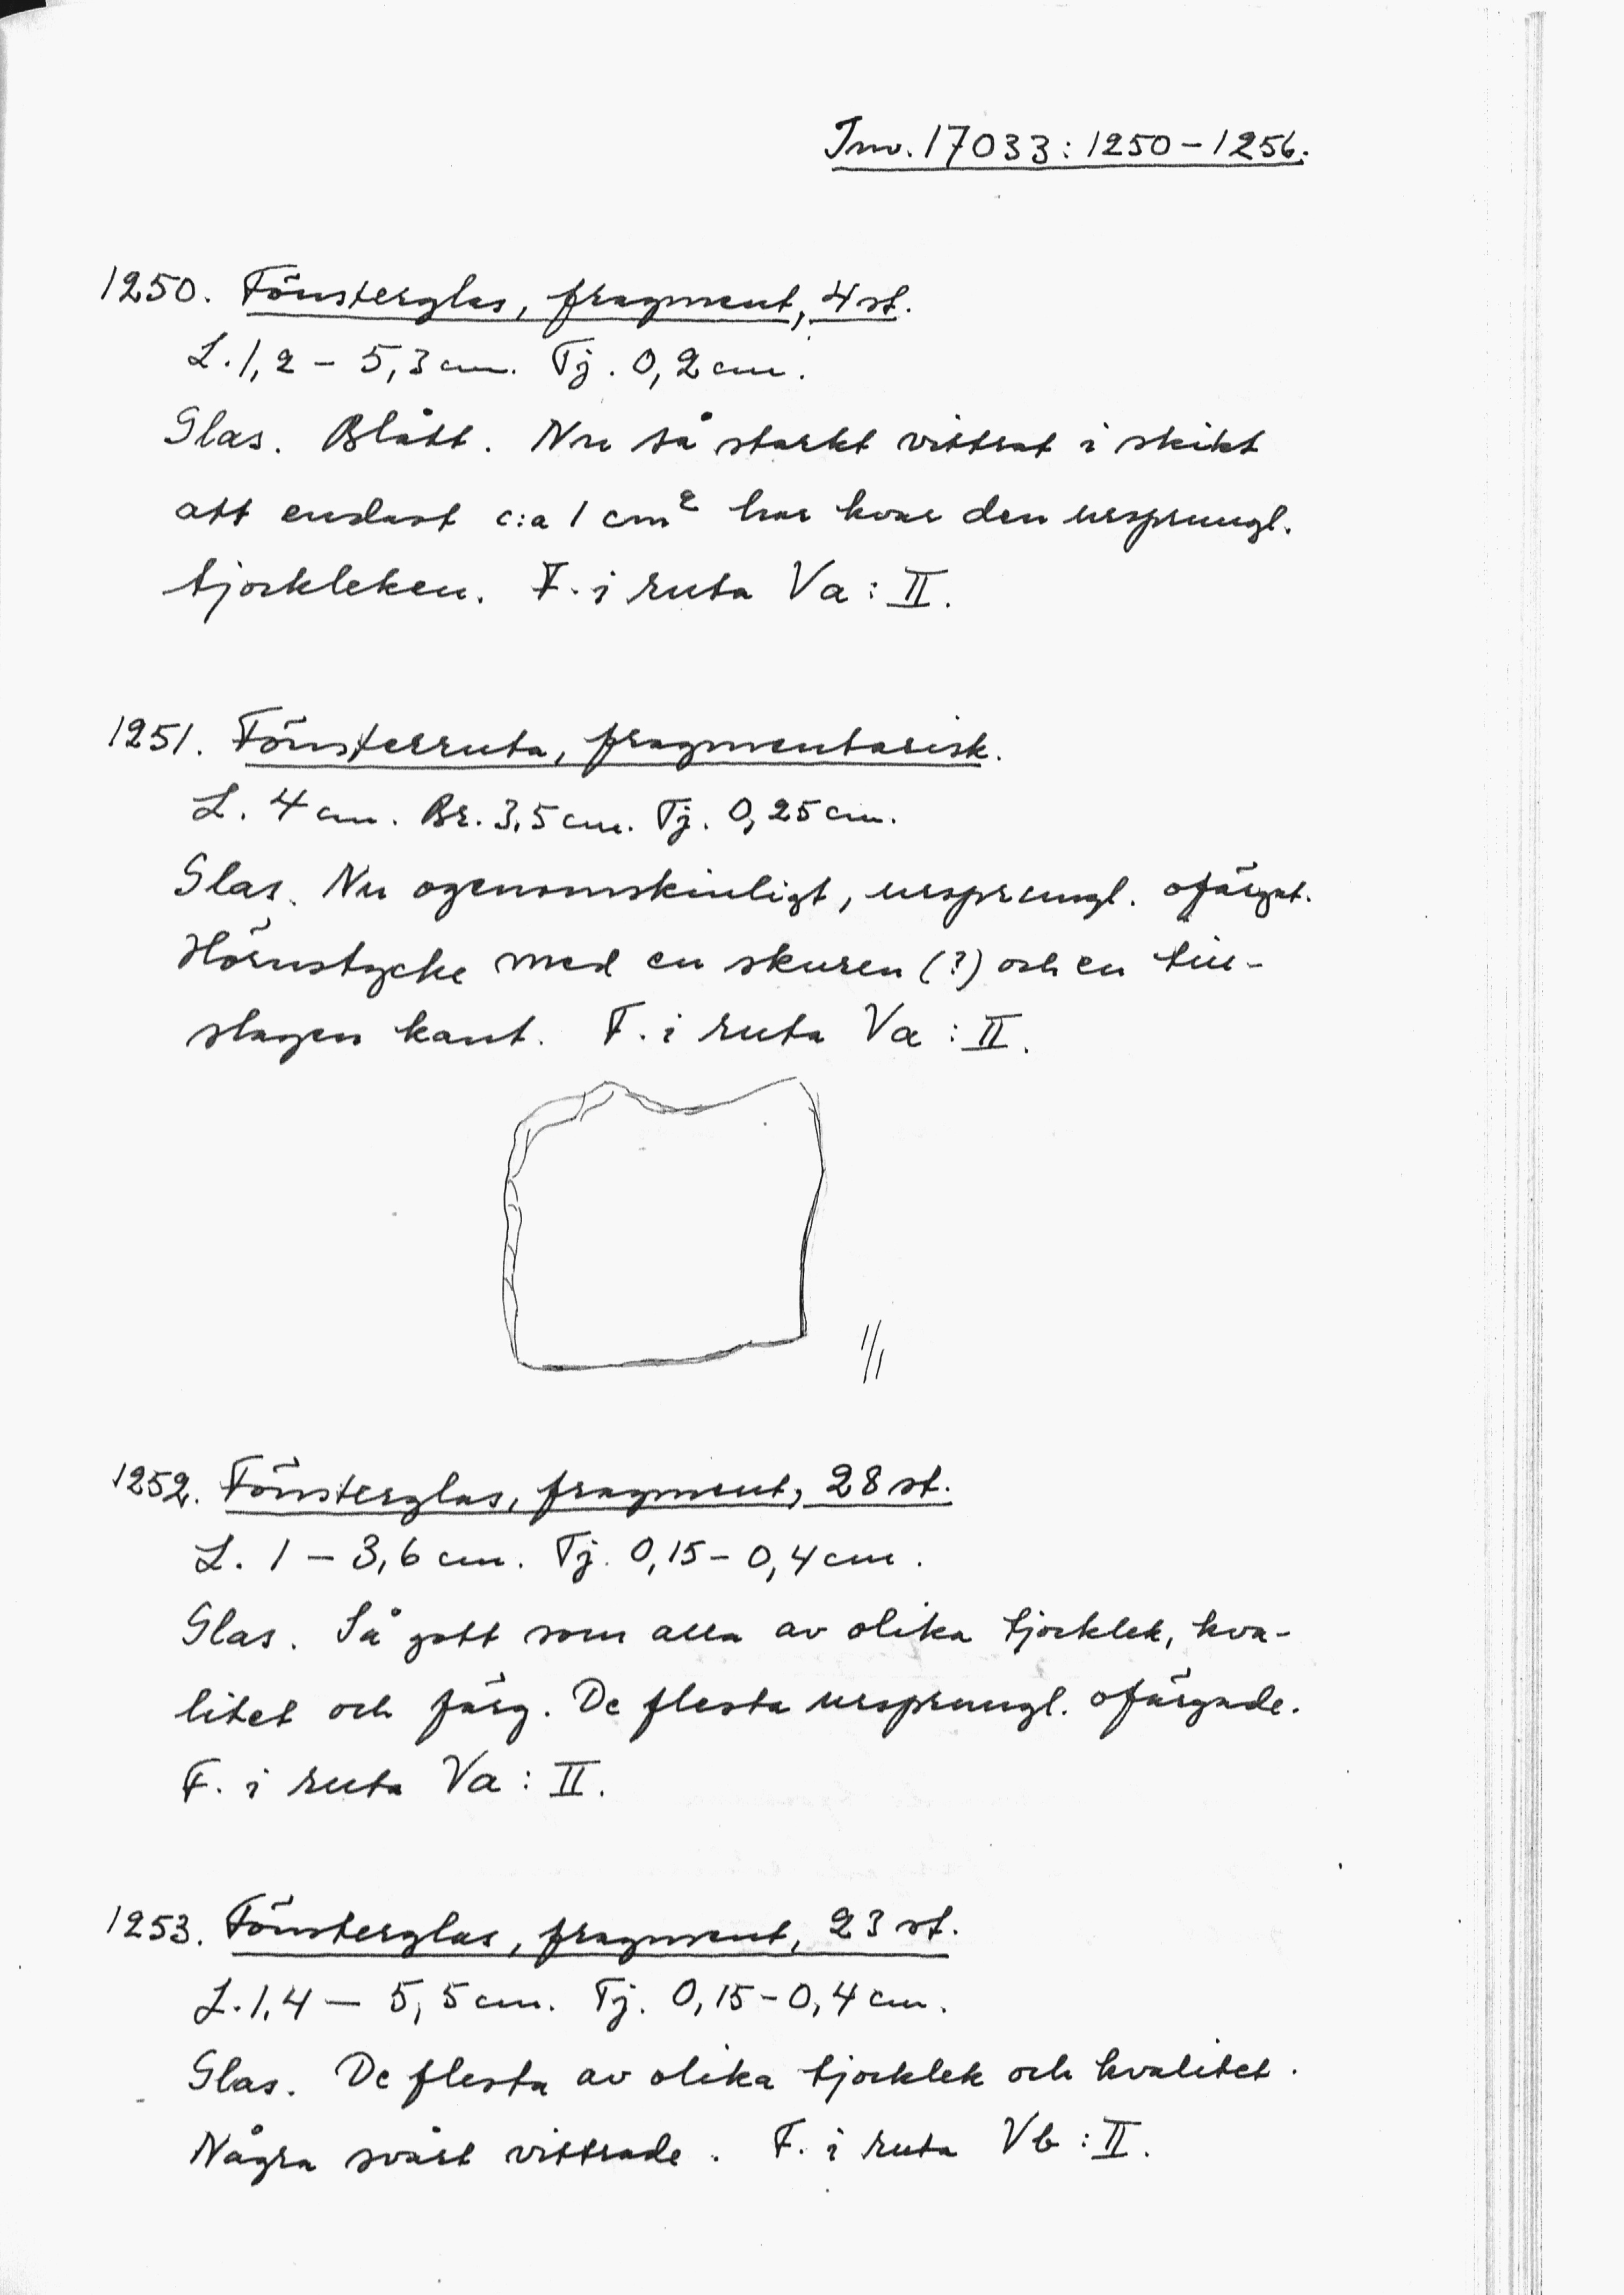 Inv. 17033: 1250 – 1256.
1250. Fönsterglas, fragment, 4 st.
L. 1,2 – 5,3 cm. Tj. 0,2 cm.
Glas. Blått. Nu så starkt vittrat i skikt
att endast c:a 1 cm² har kvar den ursprungl.
tjockleken. F. i ruta Va : II.
1251. Fönsterruta, fragmentarisk.
L. 4 cm. Br. 3,5 cm. Tj. 0,25 cm.
Glas. Nu ogenomskinligt, ursprungl. ofärgat.
Hörnstycke med en skuren (?) och en till-
slagen kant. F. i ruta Va : II.
1/1
1252. Fönsterglas, fragment, 28 st.
L. 1 – 3,6 cm. Tj. 0,15 – 0,4 cm.
Glas. Så gott som alla av olika tjocklek, kva-
litet och färg. De flesta ursprungl. ofärgade.
F. i ruta Va : II.
1253. Fönsterglas, fragment, 23 st.
L. 1,4 – 5,5 cm. Tj. 0,15 – 0,4 cm.
Glas. De flesta av olika tjocklek och kvalitet.
Några svårt vittrade. F. i ruta Vb : II.